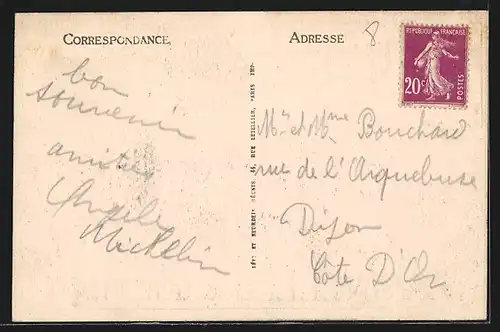 CORRESPONDANCE
ADRESSE
8
RÉPUBLIQUE FRANÇAISE
20c
POSTES
bon
souvenir
amitiés
Angèle
Michelin
LÉVY ET NEURDEIN RÉUNIS, 44, RUE LETELLIER, PARIS
Mr et Mme Bouchard
rue de l'Arquebuse
Dijon
Côte D'Or